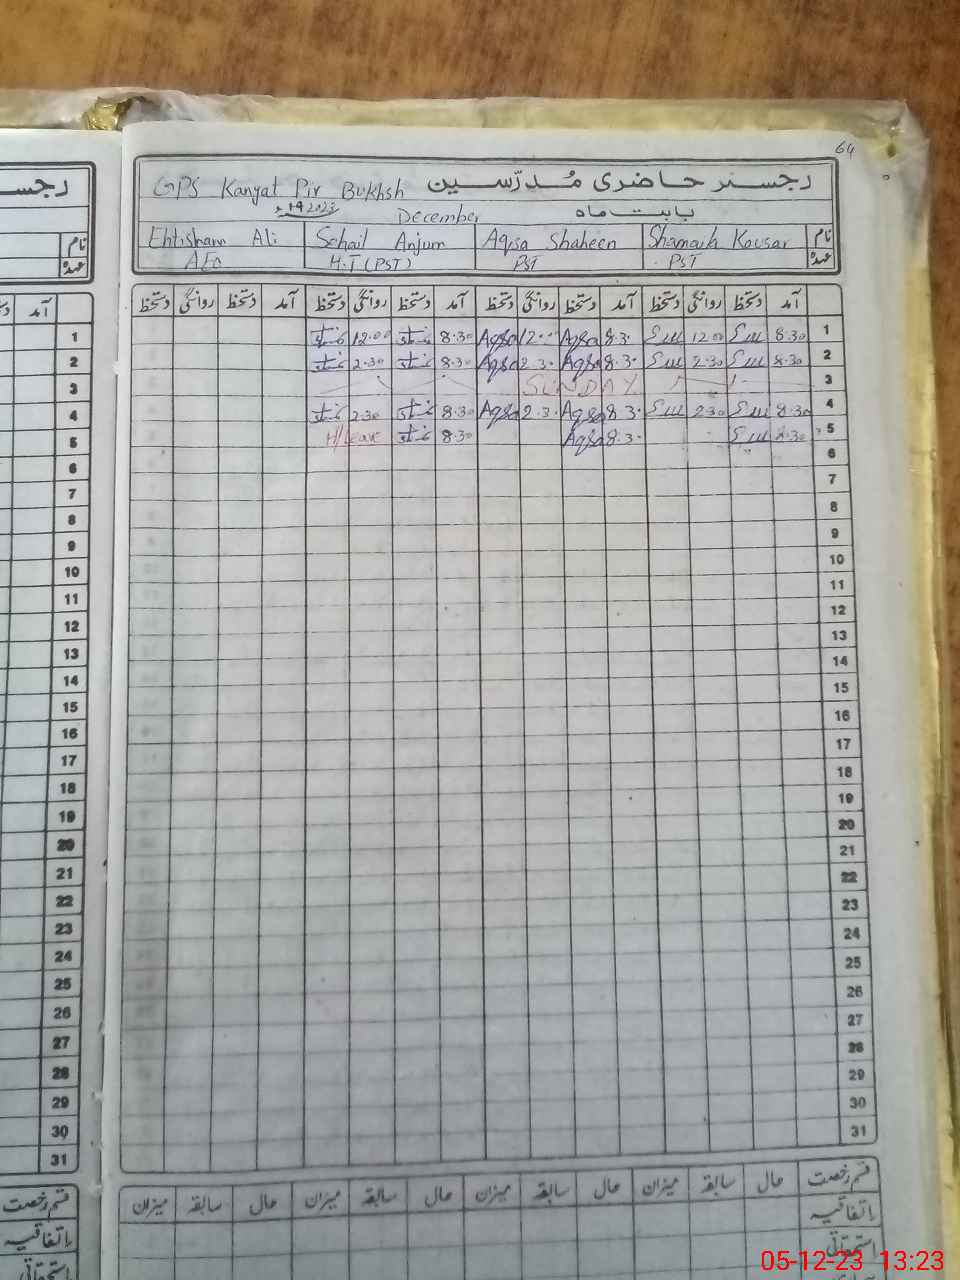 64
GPS Kanyat Pir Bukhsh رجسٹر حاضری مُدرّسین
2023 December بابت ماہ
Ehtisham Ali Sohail Anjum Aqsa Shaheen Shamaih Kousar نام
AEO H.T (PST) PST PST عہدہ
آمد دستخط روانگی دستخط آمد دستخط روانگی دستخط آمد دستخط روانگی دستخط آمد دستخط روانگی دستخط
1 8.30 12.00 8.3. Aqsa 12.. Aqsa 8.30 12.00
2 8.30 2.30 8.3. Aqsa 2.3. Aqsa 8.30 2.30
3 SUNDAY
4 8.30 2.30 8.3. Aqsa 2.3. Aqsa 8.30 2.30
5 8.30 8.3. Aqsa 8.30 H/Leave
6
7
8
9
10
11
12
13
14
15
16
17
18
19
20
21
22
23
24
25
26
27
28
29
30
31
قسم رخصت حال سابقہ میزان حال سابقہ میزان حال سابقہ میزان حال سابقہ میزان
اتفاقیہ
استحقاقی
رجس
نام
عہدہ
آمد
1
2
3
4
5
6
7
8
9
10
11
12
13
14
15
16
17
18
19
20
21
22
23
24
25
26
27
28
29
30
31
قسم رخصت
اتفاقیہ
استحقاقی
05-12-23 13:23